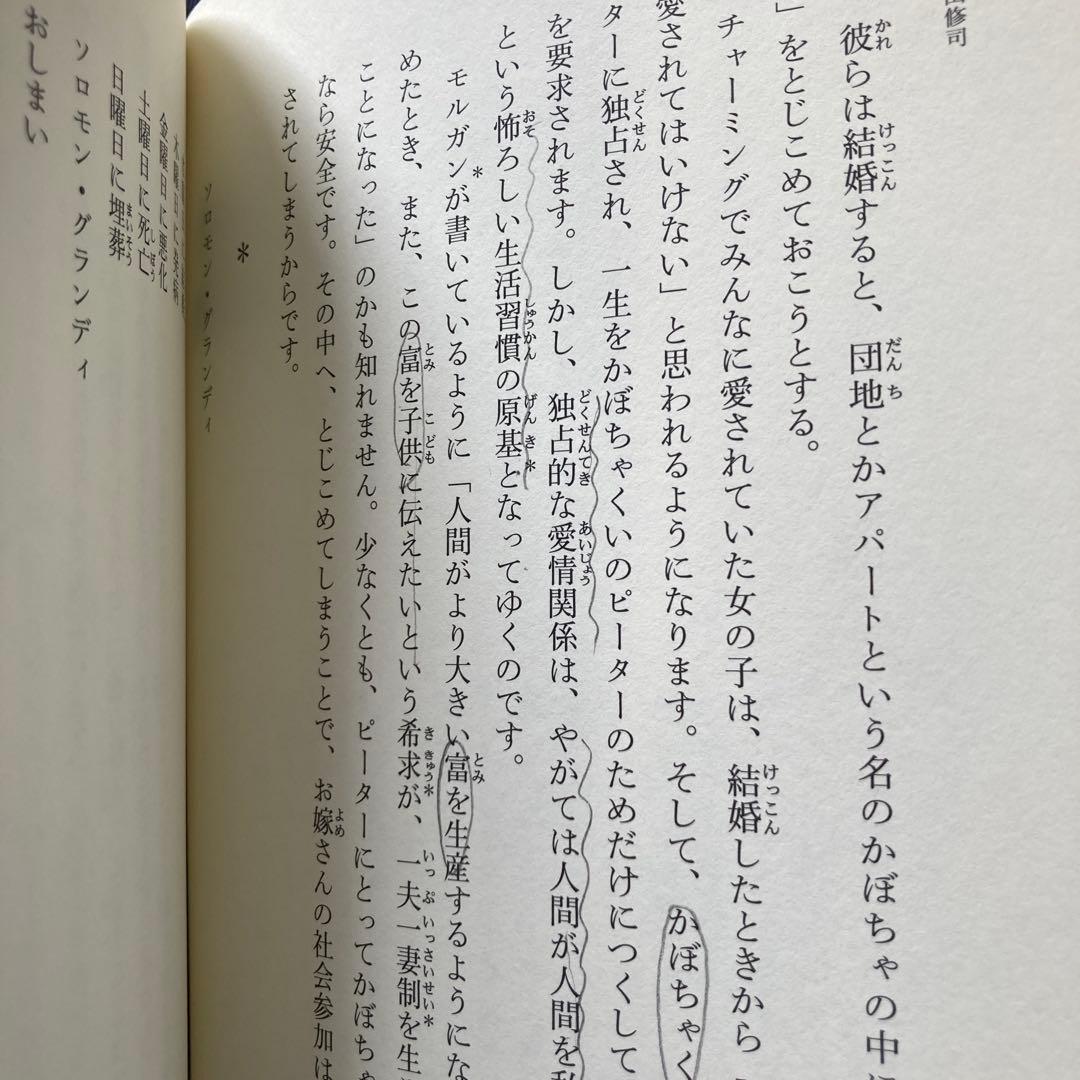 修司
彼らは結婚すると、団地とかアパートという名のかぼちゃの中に
」をとじこめておこうとする。
チャーミングでみんなに愛されていた女の子は、結婚したときから
愛されてはいけない」と思われるようになります。そして、かぼちゃく
ターに独占され、一生をかぼちゃくいのピーターのためだけにつくして
を要求されます。しかし、独占的な愛情関係は、やがては人間が人間を私
という怖ろしい生活習慣の原基*となってゆくのです。
モルガン*が書いているように「人間がより大きい富を生産するようにな
めたとき、また、この富を子供に伝えたいという希求*が、一夫一妻制*を生
ことになった」のかも知れません。少なくとも、ピーターにとってかぼちゃ
なら安全です。その中へ、とじこめてしまうことで、お嫁さんの社会参加は
されてしまうからです。
*
ソロモン・グランディ
木曜日に発病
金曜日に悪化
土曜日に死亡
日曜日に埋葬
ソロモン・グランディ
おしまい